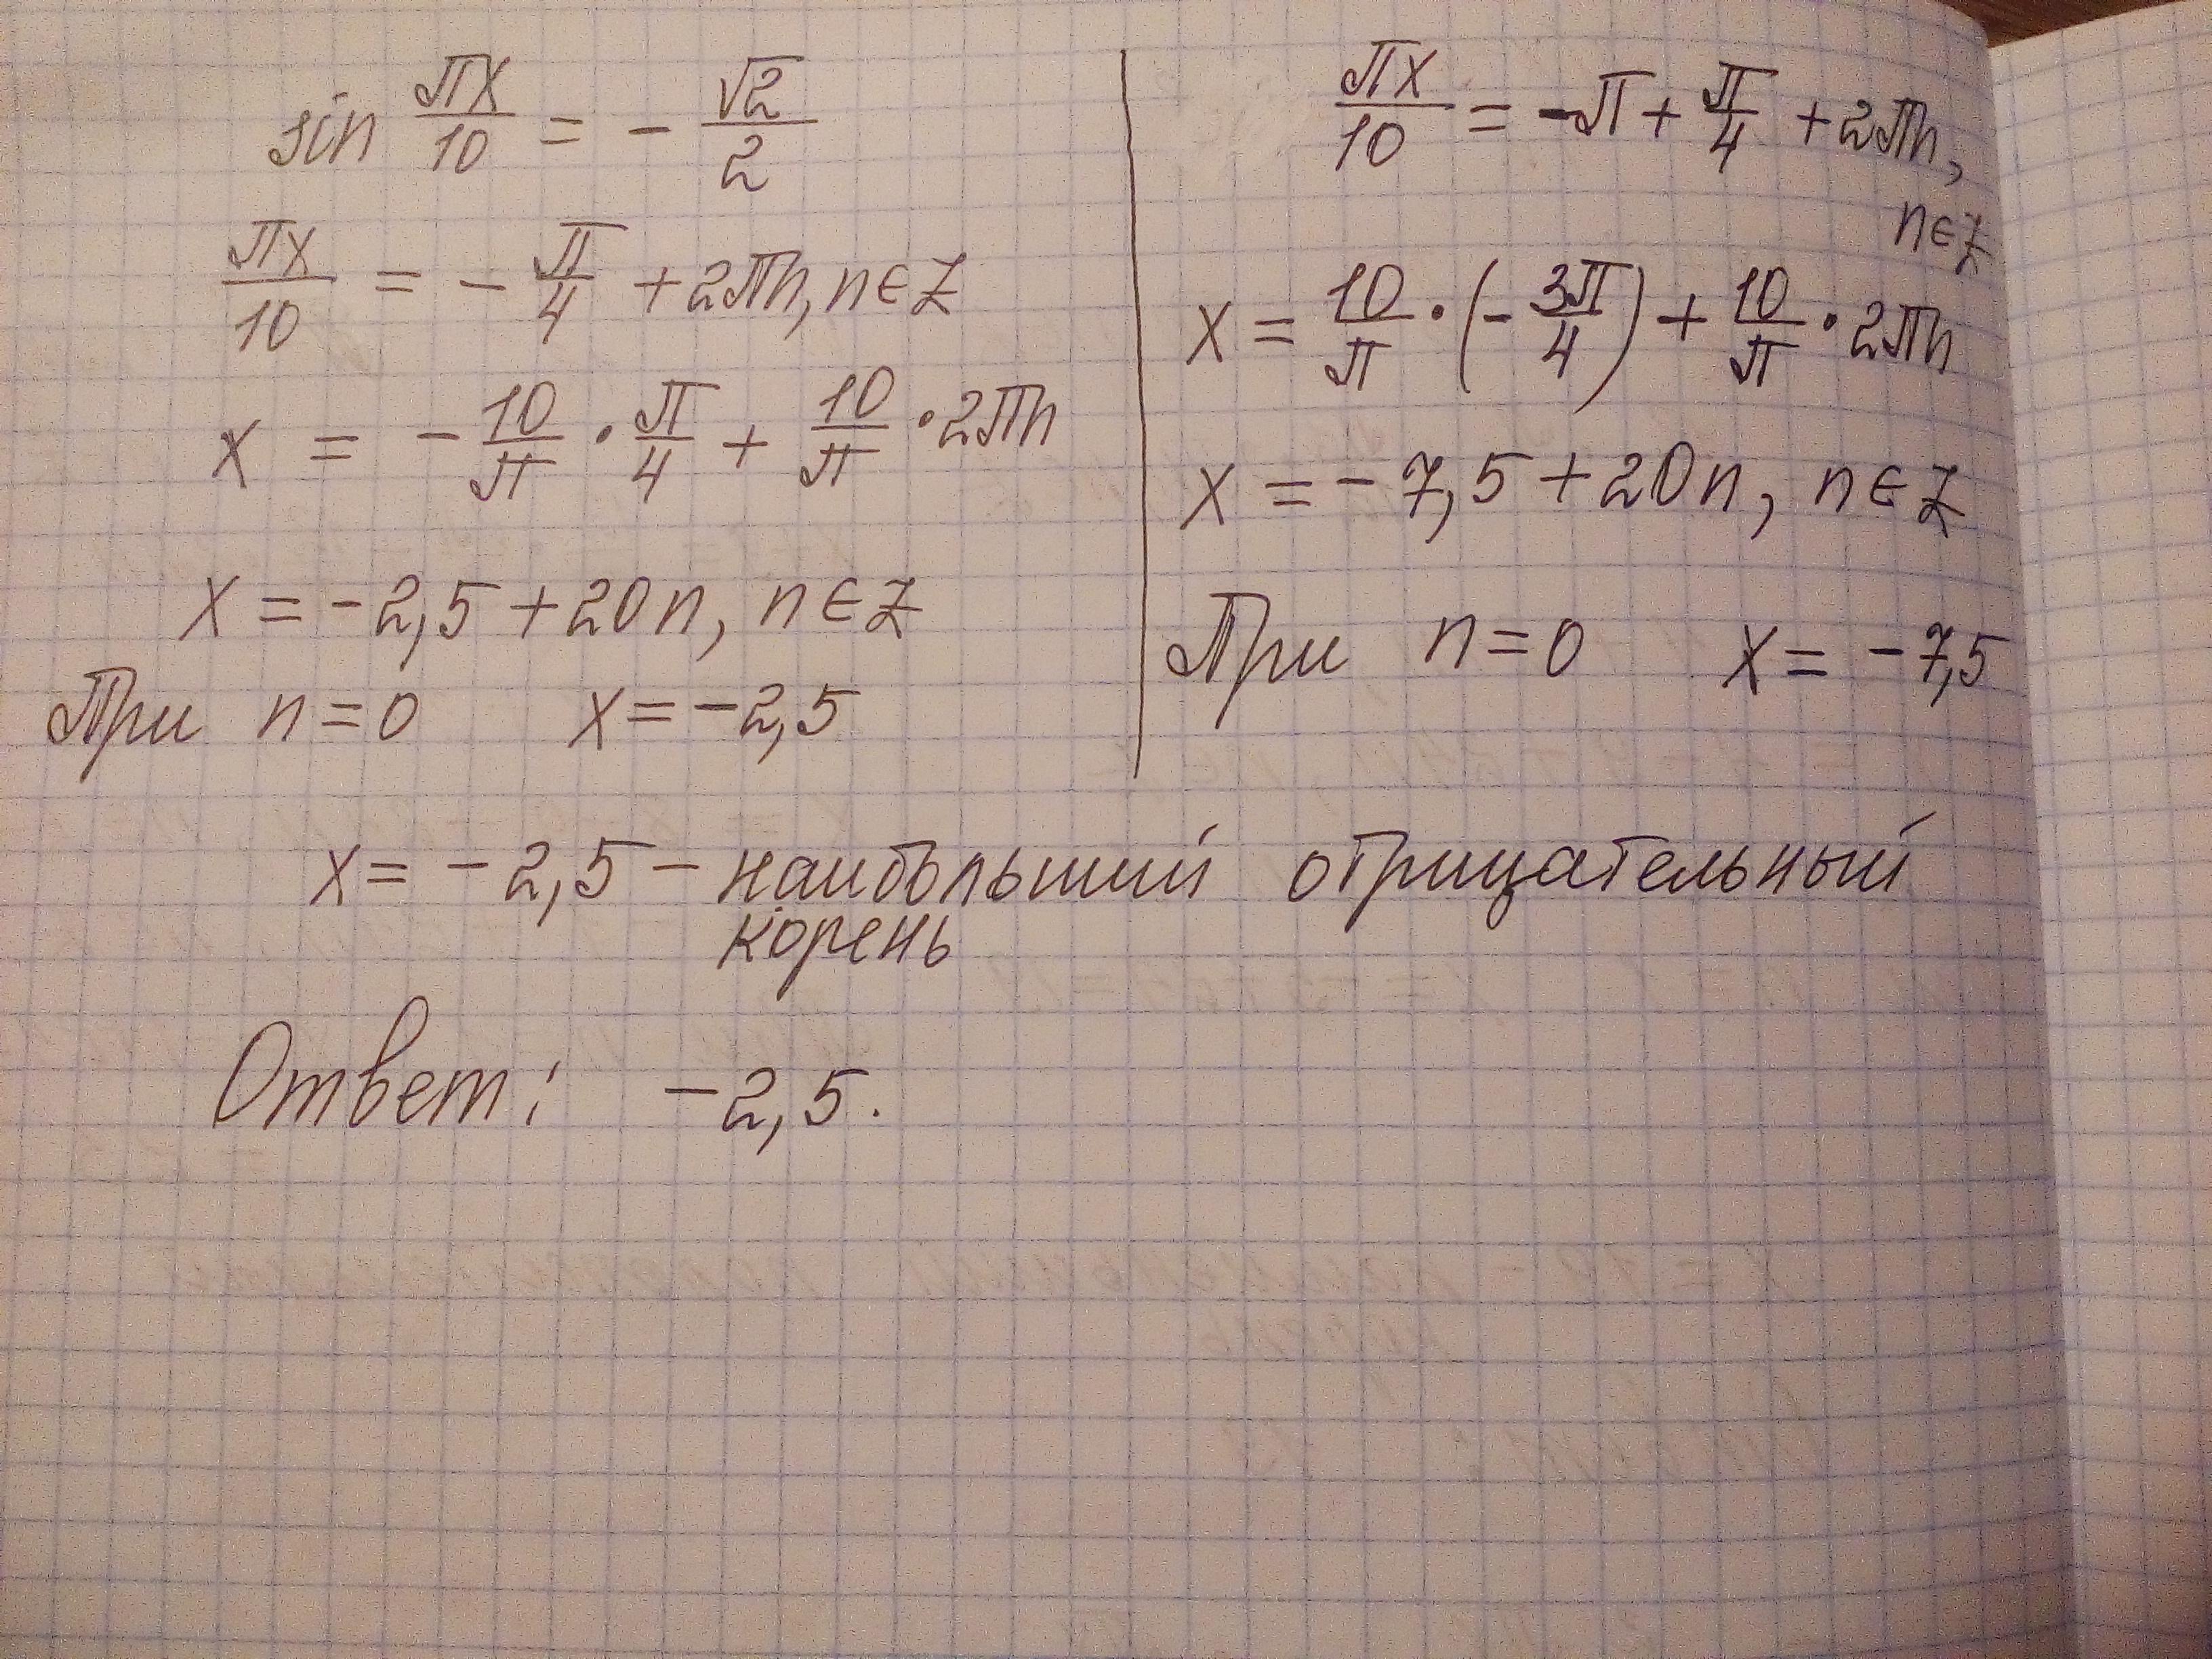 sin πx/10 = - √2/2
πx/10 = - π/4 + 2πn, n∈Z
x = - 10/π · π/4 + 10/π · 2πn
x = -2,5 + 20n, n∈Z
При n=0 x = -2,5
πx/10 = -π + π/4 + 2πn,
n∈Z
x = 10/π · (- 3π/4) + 10/π · 2πn
x = -7,5 + 20n, n∈Z
При n=0 x = -7,5
x = -2,5 - наибольший отрицательный
корень
Ответ: -2,5.